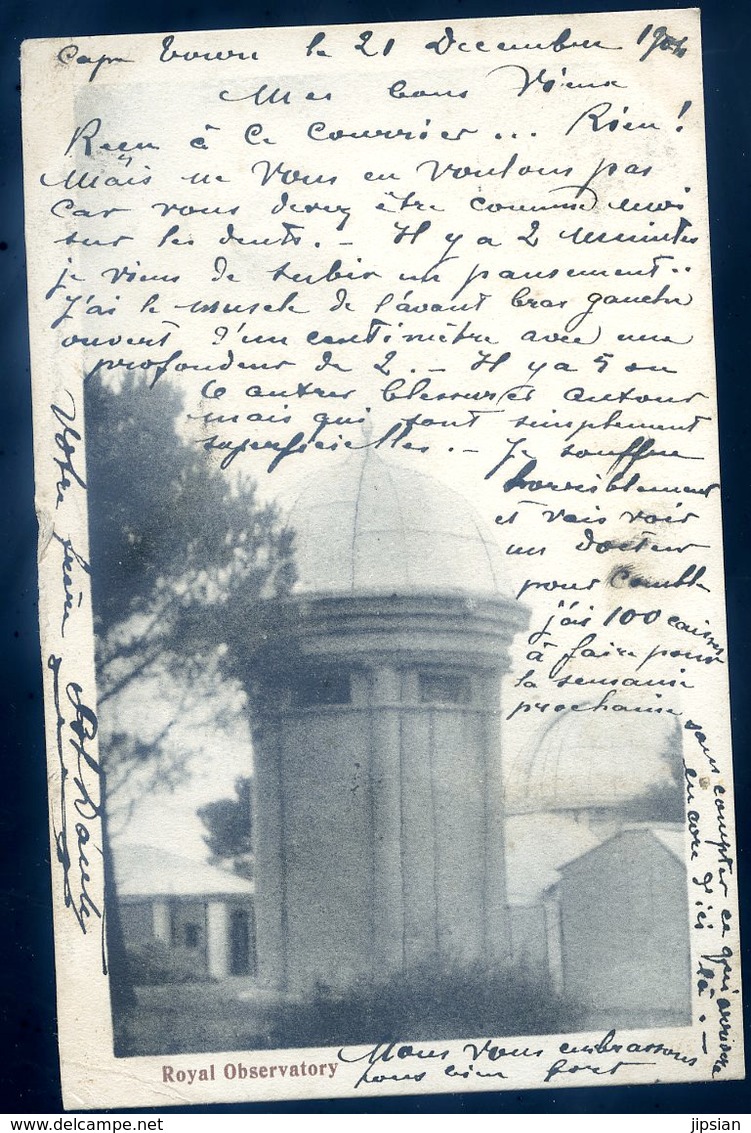 Cape Town le 21 Decembre 1904
Mes bons Vieux
Reçu à ce courrier ... Rien!
Mais ne vous en voulons pas
car vous devez être comme moi
sur les dents. - Il y a 2 minutes
je viens de subir un pansement..
J'ai le muscle de l'avant bras gauche
ouvert d'un centimètre avec une
profondeur de 2. - Il y a 5 ou
6 autres blessures autour
mais qui sont simplement
superficielles. - Je souffre
horriblement
et vais voir
un docteur
pour comble
j'ai 100 caisses
à faire pour
la semaine
prochaine
sans compter ce qui arrivera
encore d'ici là. -
Nous vous embrassons
tous bien fort
Votre frère
Royal Observatory
jipsian